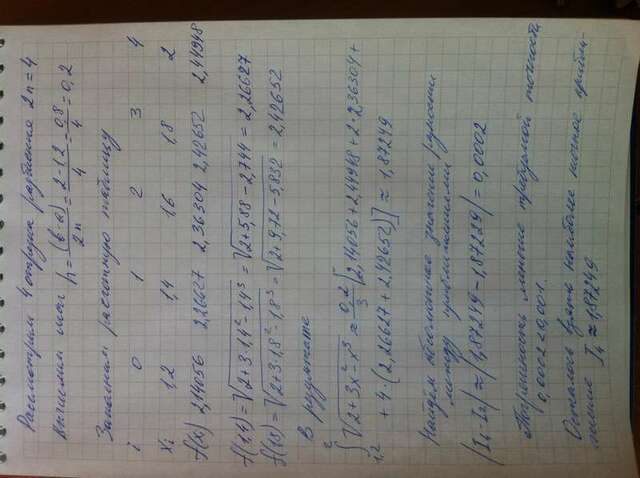 Рассмотрим 4 отрезка разбиения 2n = 4
Вычислим шаг h = (b-a)/2n = 2-1.2/4 = 0,8/4 = 0,2
Заполним расчетную таблицу
i 0 1 2 3 4
xi 1,2 1,4 1,6 1,8 2
f(x) 2,14056 2,26627 2,36304 2,42652 2,44948
f(1,4) = √2+3·1,4²-1,4³ = √2+5,88-2,744 = 2,26627
f(1,8) = √2+3·1,8²-1,8³ = √2+9,72-5,832 = 2,42652
В результате
2∫1,2 √2+3x²-x³ ≈ 0,2/3 [2,14056+2,44948+2·2,36304+
+4·(2,26627+2,42652)] ≈ 1,87249
Найдем абсолютное значение разности
между приближениями
|I4-I2| ≈ |1,87249-1,87229| = 0,0002
Погрешность меньше требуемой точности
0,0002<0,001.
Осталось взять наиболее точное прибли-
жение I4 ≈ 1,87249